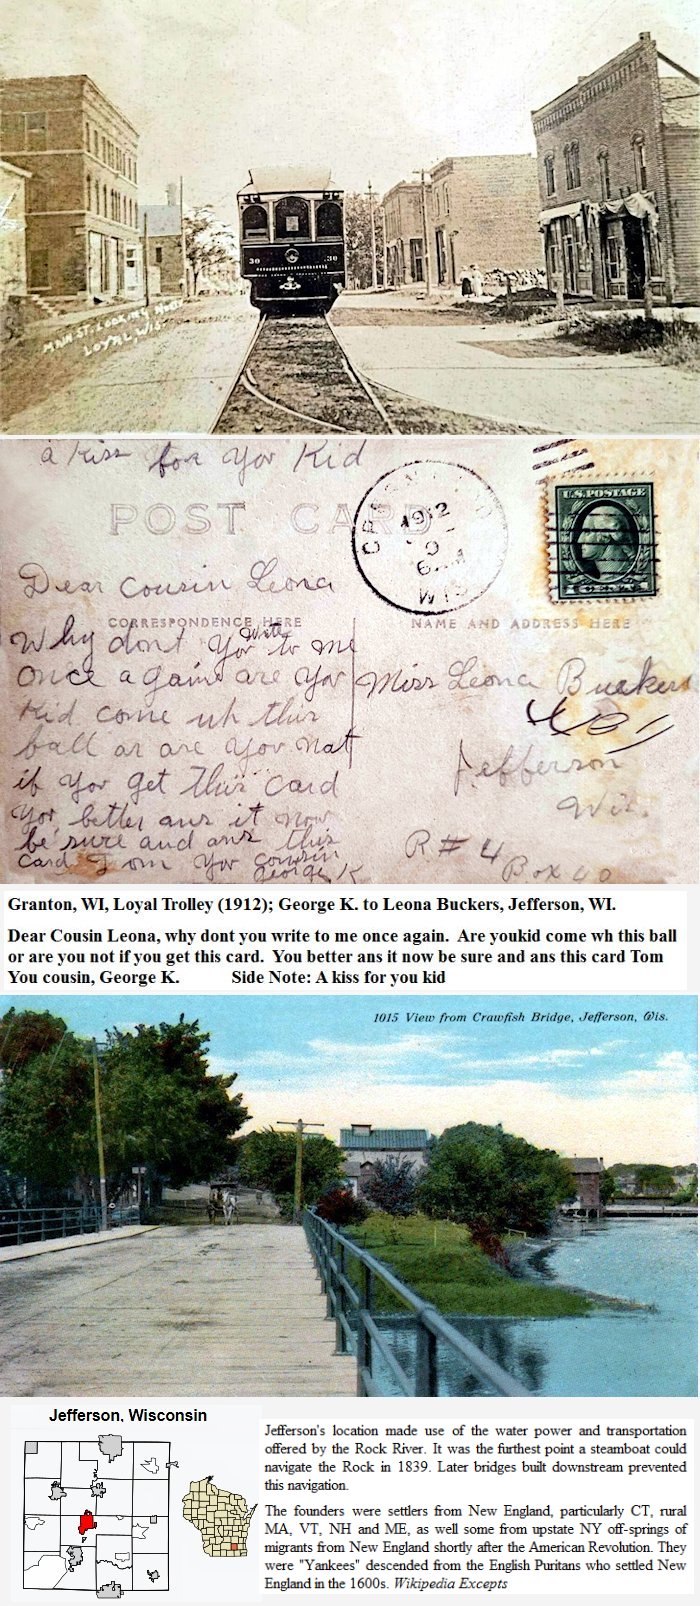 30
30
MAIN ST. LOOKING
LOYAL, WIS.
a kiss for yov Kid
POST CARD
1912
6
WIS
U.S. POSTAGE
Dear Cousin Leona
CORRESPONDENCE HERE
NAME AND ADDRESS HERE
Why dont yov Write to me
once a gain are yov
Kid come uh this
ball or are yov nat
if yov get this card
yov better ans it now
be sure and ans this
card From yov cousin
George K
Miss Leona Buekers
Jefferson
Wis.
R # 4
Box 40
Granton, WI, Loyal Trolley (1912); George K. to Leona Buckers, Jefferson, WI.
Dear Cousin Leona, why dont you write to me once again. Are youkid come wh this ball
or are you not if you get this card. You better ans it now be sure and ans this card Tom
You cousin, George K. Side Note: A kiss for you kid
1015 View from Crawfish Bridge, Jefferson, Wis.
Jefferson, Wisconsin
Jefferson's location made use of the water power and transportation
offered by the Rock River. It was the furthest point a steamboat could
navigate the Rock in 1839. Later bridges built downstream prevented
this navigation.
The founders were settlers from New England, particularly CT, rural
MA, VT, NH and ME, as well some from upstate NY off-springs of
migrants from New England shortly after the American Revolution. They
were "Yankees" descended from the English Puritans who settled New
England in the 1600s. Wikipedia Excepts